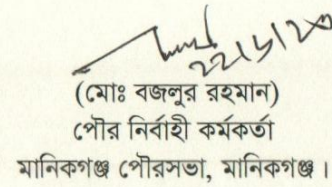 (মোঃ বজলুর রহমান)
পৌর নির্বাহী কর্মকর্তা
মানিকগঞ্জ পৌরসভা, মানিকগঞ্জ।